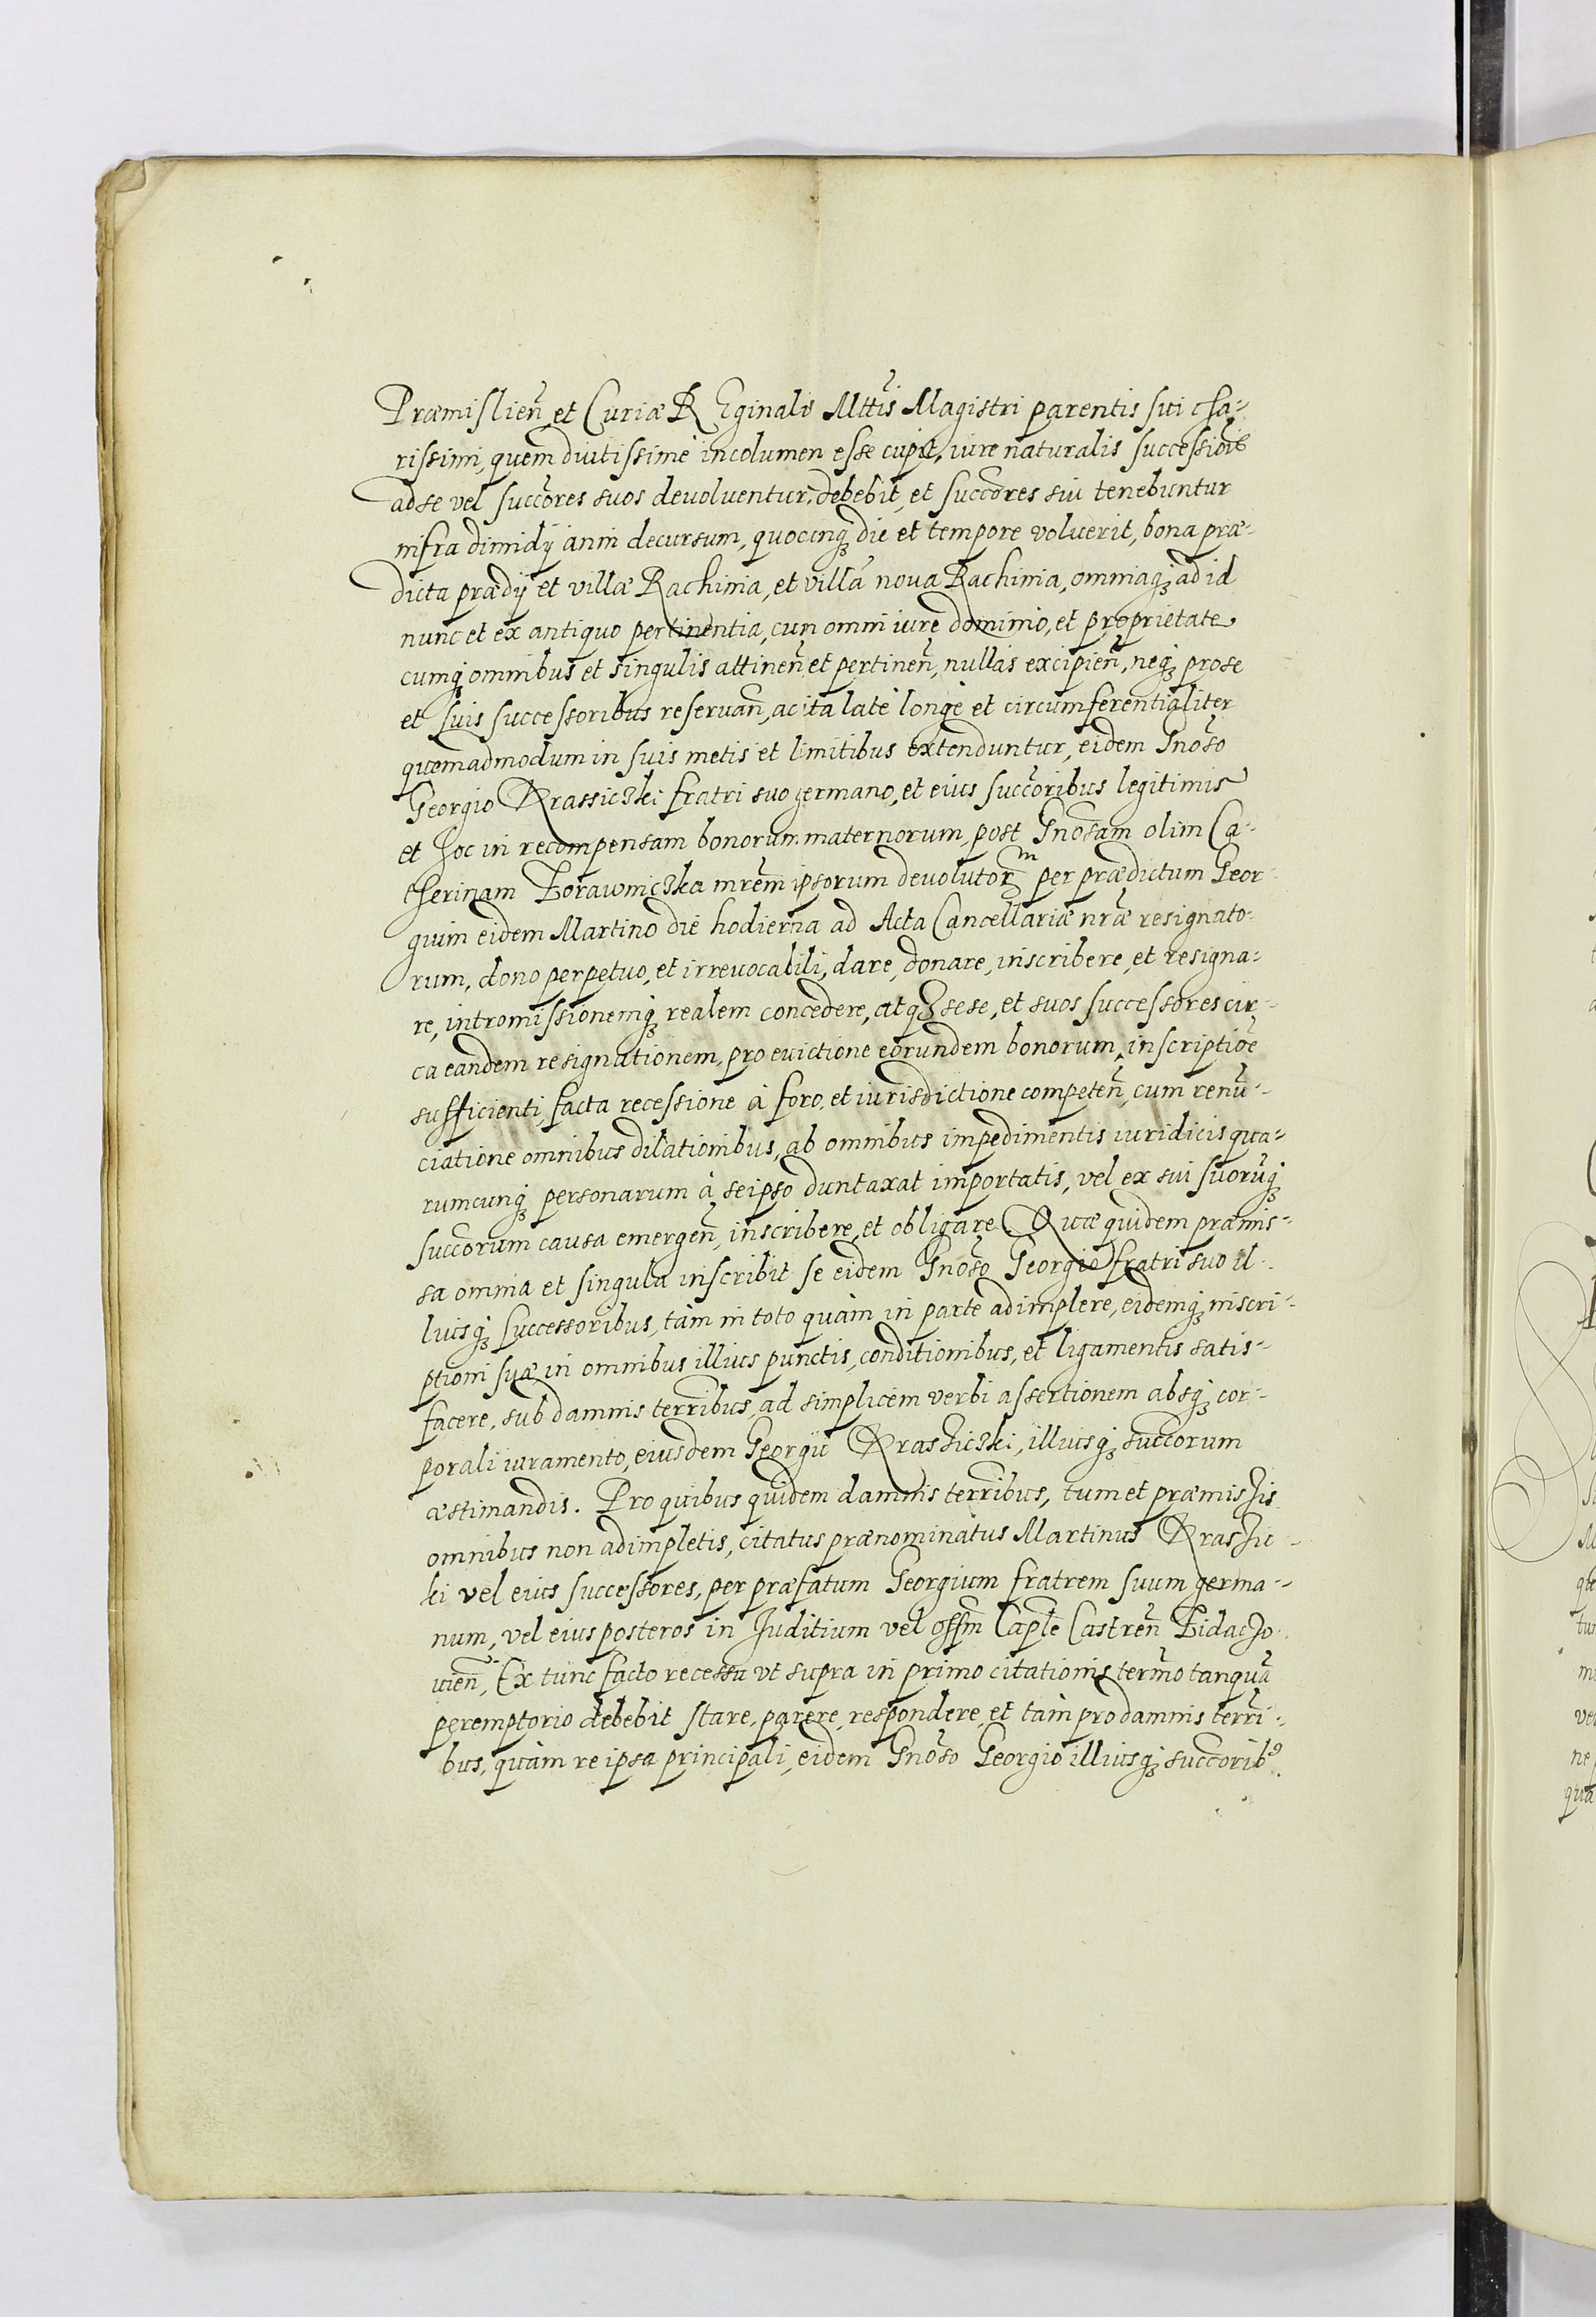 Præmislień et Curiæ REginalis Mttis Magistri parentis sui cha-
rissimi, quem diutissimè incolumen esse cupit, iure naturalis successiois
ad se vel succores suos deuoluentur, debebit, et succores sui tenebuntur
infra dimidij anni decursum, quocunq die et tempore voluerit, bona præ-
dicta prædij et villæ Rachinia, et villa noua Rachinia, omniaq ad id
nunc et ex antiquo pertinentia, cum omni iure dominio, et proprietate
cumq omnibus et singulis attineń et pertineń, nullis excipień, neq pro se
et suis successoribus reseruań, ac ita latè longè et circumferentialiter
quemadmodum in suis metis et limitibus extenduntur, eidem Gnoso
Georgio Krassiczki fratri suo germano, et eius succoribus legitimis
et hoc in recompensam bonorum maternorum, post Gnosam olim Ca-
therinam Borawniczka mrem ipsorum deuolutorm per prædictum Geor-
gium eidem Martino die hodierna ad Acta Cancellariæ nræ resignato-
rum, dono perpetuo, et irreuocabili, dare, donare, inscribere, et resigna-
re, intromissionemq realem concedere, atq sese, et suos successores cir-
ca eandem resignationem, pro euictione eorundem bonorum, inscriptioe
sufficienti, facta recessione à foro, et iurisdictione competeń, cum renu-
ciatione omnibus dilationibus, ab omnibus impedimentis iuridicis qua-
rumcunq personarum à seipso duntaxat importatis, vel ex sui suoruq
succorum causa emergeń, inscribere, et obligare. Quæ quidem præmis-
sa omnia et singula inscribit se eidem Gnoso Georgio fratri suo il-
liusq successoribus, tàm in toto quàm in parte adimplere, eidemq inscri-
ptioni suæ in omnibus illius punctis, conditionibus, et ligamentis satis-
facere, sub damnis terribus, ad simplicem verbi assertionem absq cor-
porali iuramento, eiusdem Georgii Krasziczki, illiusq succorum
æstimandis. Pro quibus quidem damnis terribus, tum et præmissis
omnibus non adimpletis, citatus prænominatus Martinus Krasic-
ki vel eius successores, per præfatum Georgium fratrem suum germa-
num, vel eius posteros in Juditium vel offm Caple Castreń Zidacho-
uień, Ex tunc facto recessu vt supra in primo citationis termo tanqua
peremptorio debebit stare, parere, respondere, et tàm pro damnis terri-
bus, quàm re ipsa principali, eidem Gnoso Georgio illiusq succorib9.